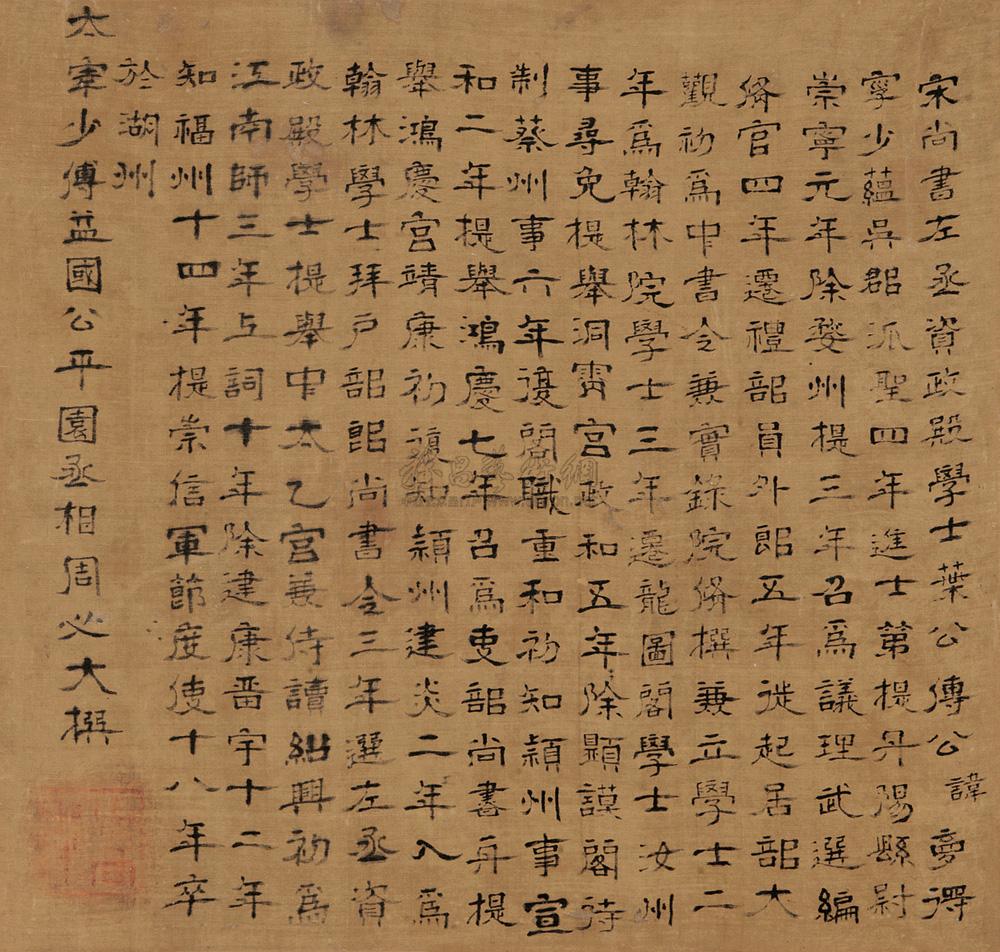 宋尚書左丞資政殿學士葉公傳公諱夢得
字少蘊吳郡派聖四年進士第提丹陽縣尉
崇寧元年除婺州提三年召為議理武選編
脩官四年遷禮部員外郎五年徙起居部大
觀初為中書令兼實錄院脩撰兼立學士二
年為翰林院學士三年遷龍圖閣學士汝州
事尋免提舉洞霄宮政和五年除顯謨閣待
制蔡州事六年復閣職重和初知潁州事宣
和二年提舉鴻慶七年召為吏部尚書再提
舉鴻慶宮靖康初復知潁州建炎二年入為
翰林學士拜戶部郎尚書令三年選左丞資
政殿學士提舉中太乙宮兼侍讀紹興初為
江南師三年上詞十年除建康晋宇十二年
知福州十四年提崇信軍節度使十八年卒
於湖州
太宰少傅益國公平園丞相周必大撰